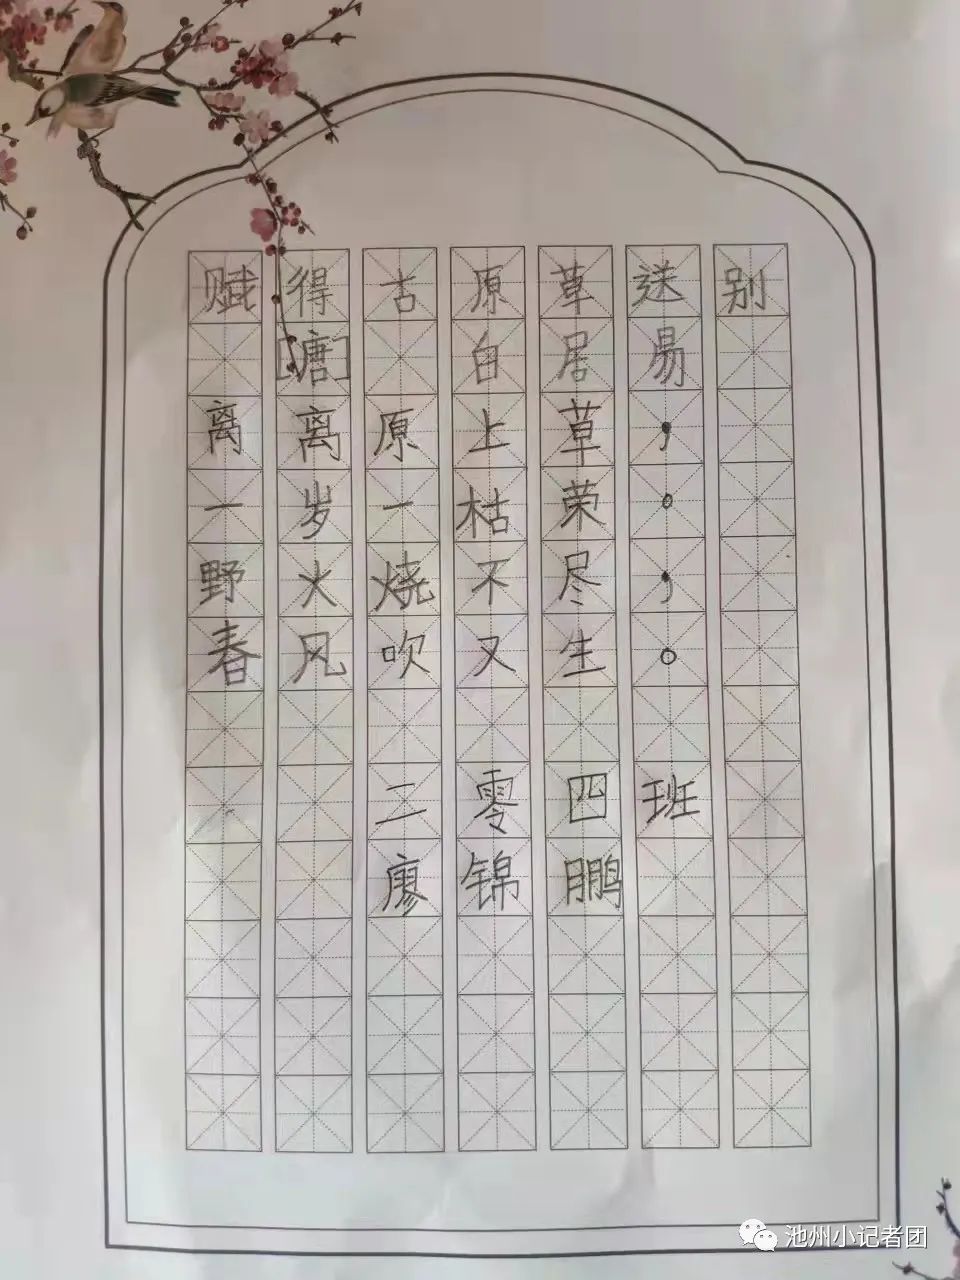 赋得古原草送别
[唐] 白居易
离离原上草，
一岁一枯荣。
野火烧不尽，
春风吹又生。
二零四班
廖锦鹏
池州小记者团